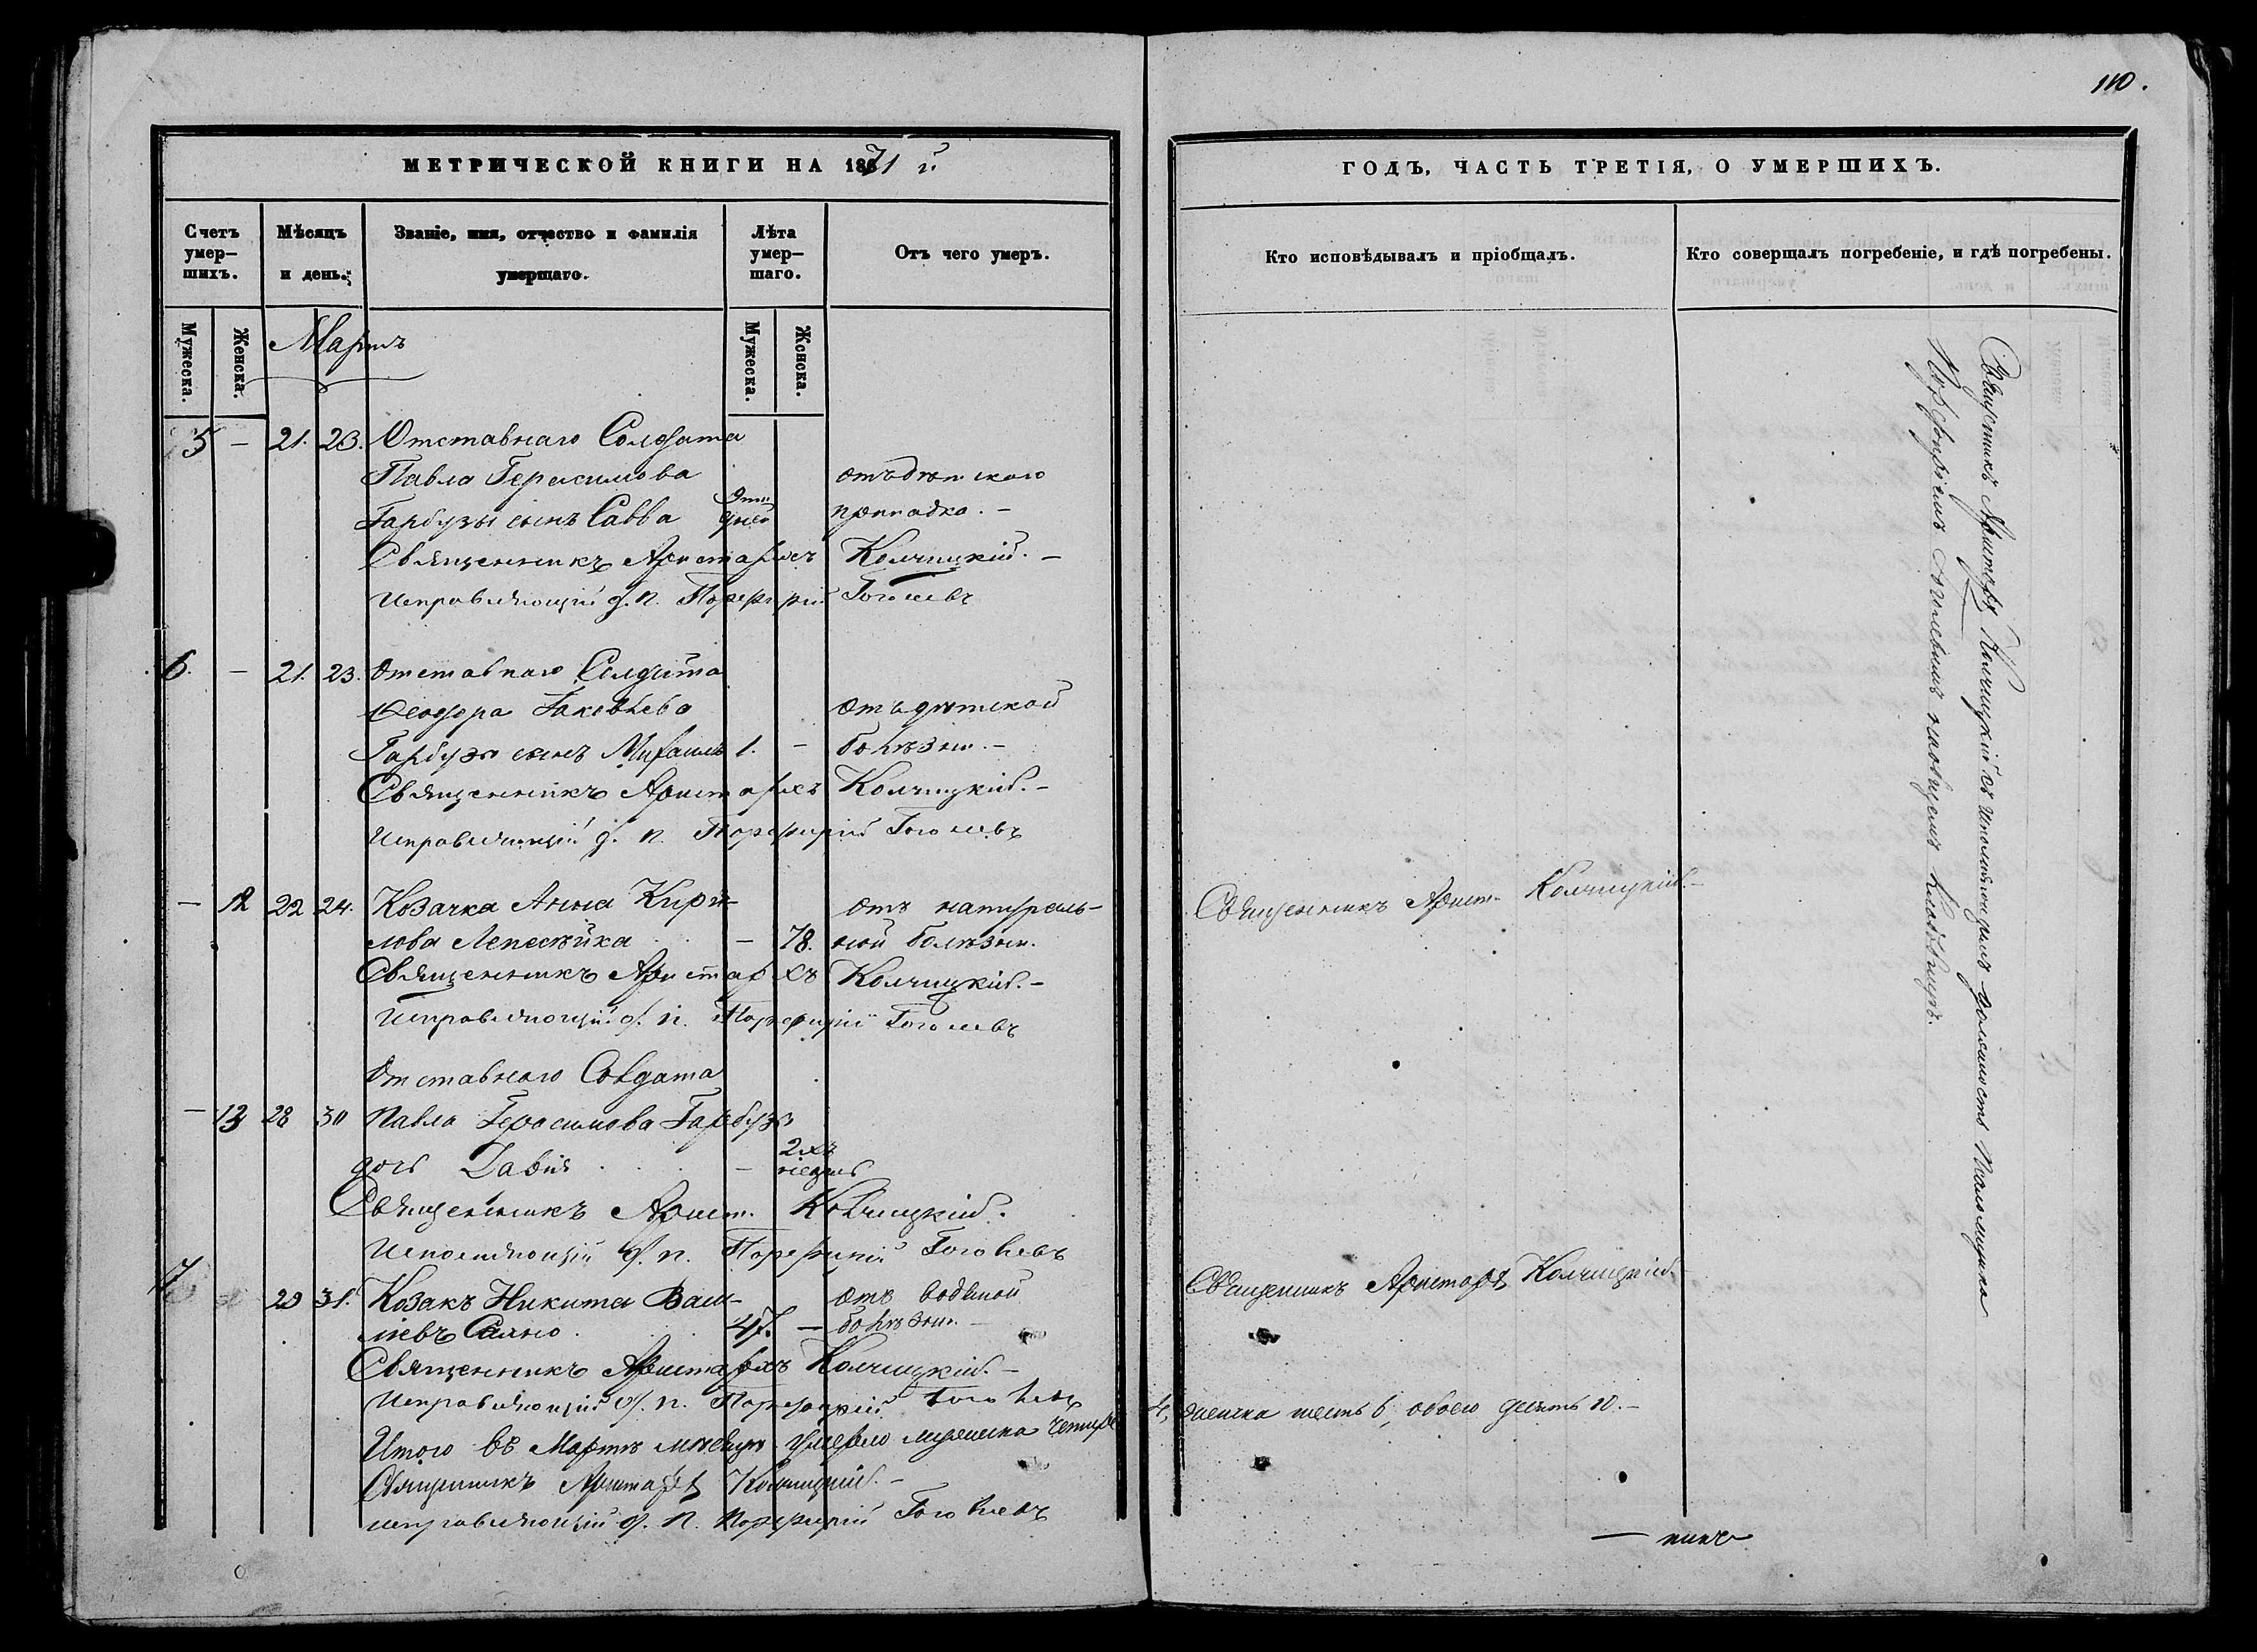 110.
МЕТРИЧЕСКОЙ КНИГИ НА 1871 й
ГОДЪ, ЧАСТЬ ТРЕТІЯ, О УМЕРШИХЪ.
Счетъ умер-шихъ.
Мѣсяцъ и день.
Званіе, имя, отчество и фамилія умершаго.
Лѣта умер-шаго.
Отъ чего умеръ.
Кто исповѣдывалъ и пріобщалъ.
Кто совершалъ погребеніе, и гдѣ погребены.
Мужеска.
Женска.
Мартъ
Мужеска.
Женска.
5 — 21. 23. Отставнаго Солдата
Павла Герасимова отъ дѣтскаго
Гарбузы сынъ Савва дней припадка. —
Священникъ Аристархъ Колчицкій. —
Исправляющій д. п. Порфирій Гоголевъ
6. — 21. 23. Отставнаго Солдата
Ѳеодора Іаковлева отъ дѣтской
Гарбуза сынъ Михаилъ 1. — болѣзни. —
Священникъ Аристархъ Колчицкій. —
Исправляющій д. п. Порфирій Гоголевъ
— 12 22 24. Козачка Анна Кири- отъ натураль-
лова Лепесѣйка — 78. ной болѣзни.
Священникъ Арист. Колчицкій. —
Священникъ Аристархъ Колчицкій. —
Исправляющій д. п. Порфирій Гоголевъ
Отставнаго Солдата
— 13 28 30 Павла Герасимова Гарбуза
дочь — 2хъ недѣль
Священникъ Арист. Колчицкій.
Исполняющій д. п. Порфирій Гоголевъ
7 29 31. Козакъ Никита Васи- отъ водяной
ліевъ 47. — болѣзни. —
Священникъ Аристархъ Колчицкій. —
Священникъ Аристархъ Колчицкій. —
Исправляющій д. п. Порфирій Гоголевъ
Итого въ Мартѣ мѣсяцѣ умерло мужеска четыре 4, женска шесть 6, обоего десять 10. —
Священникъ Аристархъ Колчицкій. —
исправляющій д. п. Порфирій Гоголевъ
Священникъ Аристархъ Колчицкій съ исполняющимъ должность Псаломщика
Порфиріемъ Гоголевымъ на общемъ кладбищѣ.